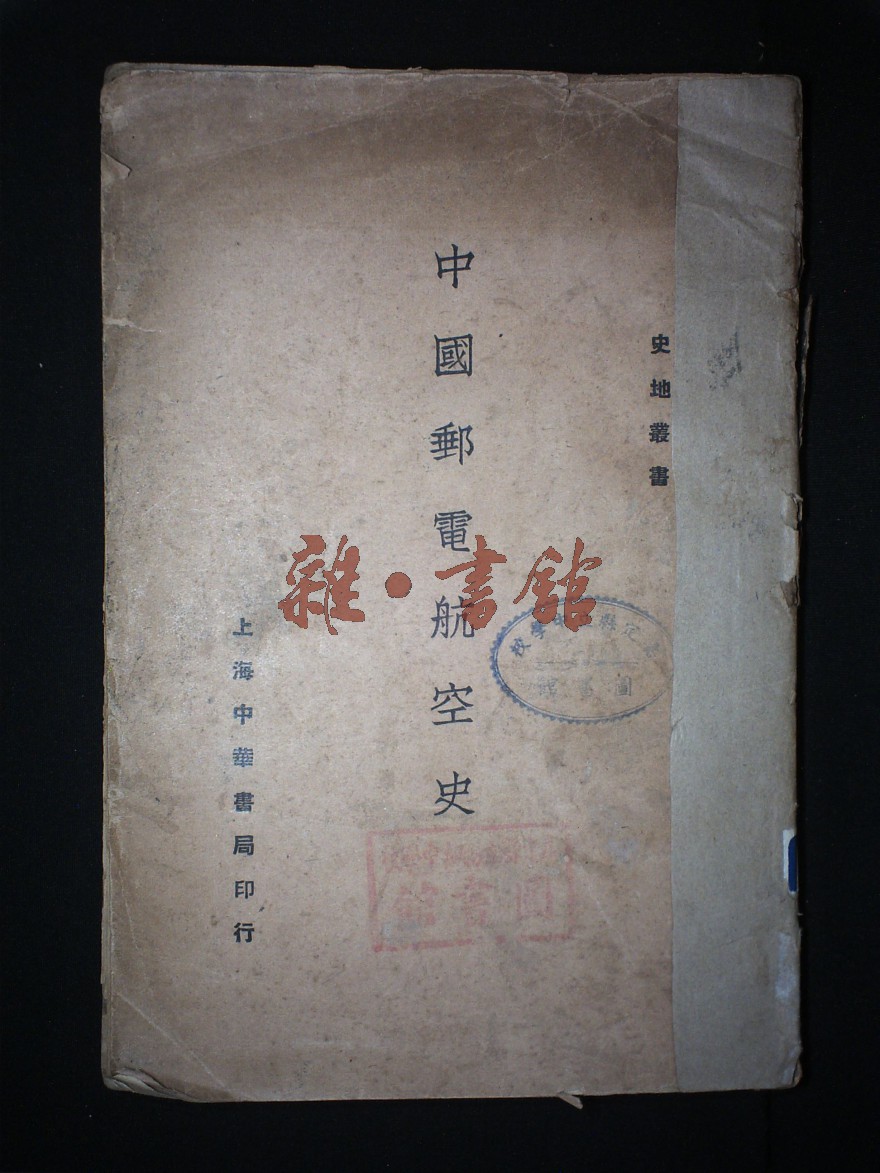 史地叢書
中國郵電航空史
上海中華書局印行
雜·書館
定縣
學校
圖書館
圖書館